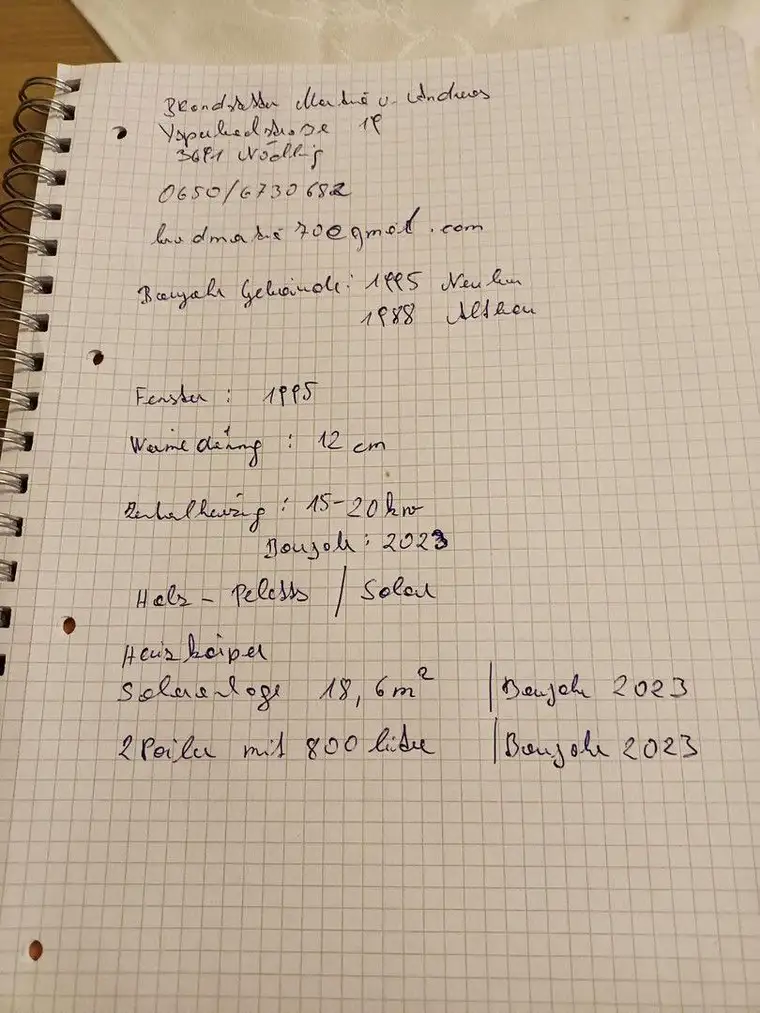 Brandstetter Martina u. Andreas
Ysperbachstrasse 19
3691 Nöchling
0650/6730682
70@gmail.com
Baujahr Gebäude: 1995 Neubau
1988 Altbau
Fenster: 1995
Wärmedämmung: 12 cm
Zentralheizung: 15-20 kw
Baujahr: 2023
Holz - Peletts / Solar
Heizkörper
Solaranlage 18,6m² | Baujahr 2023
2 Poiler mit 800 liter | Baujahr 2023